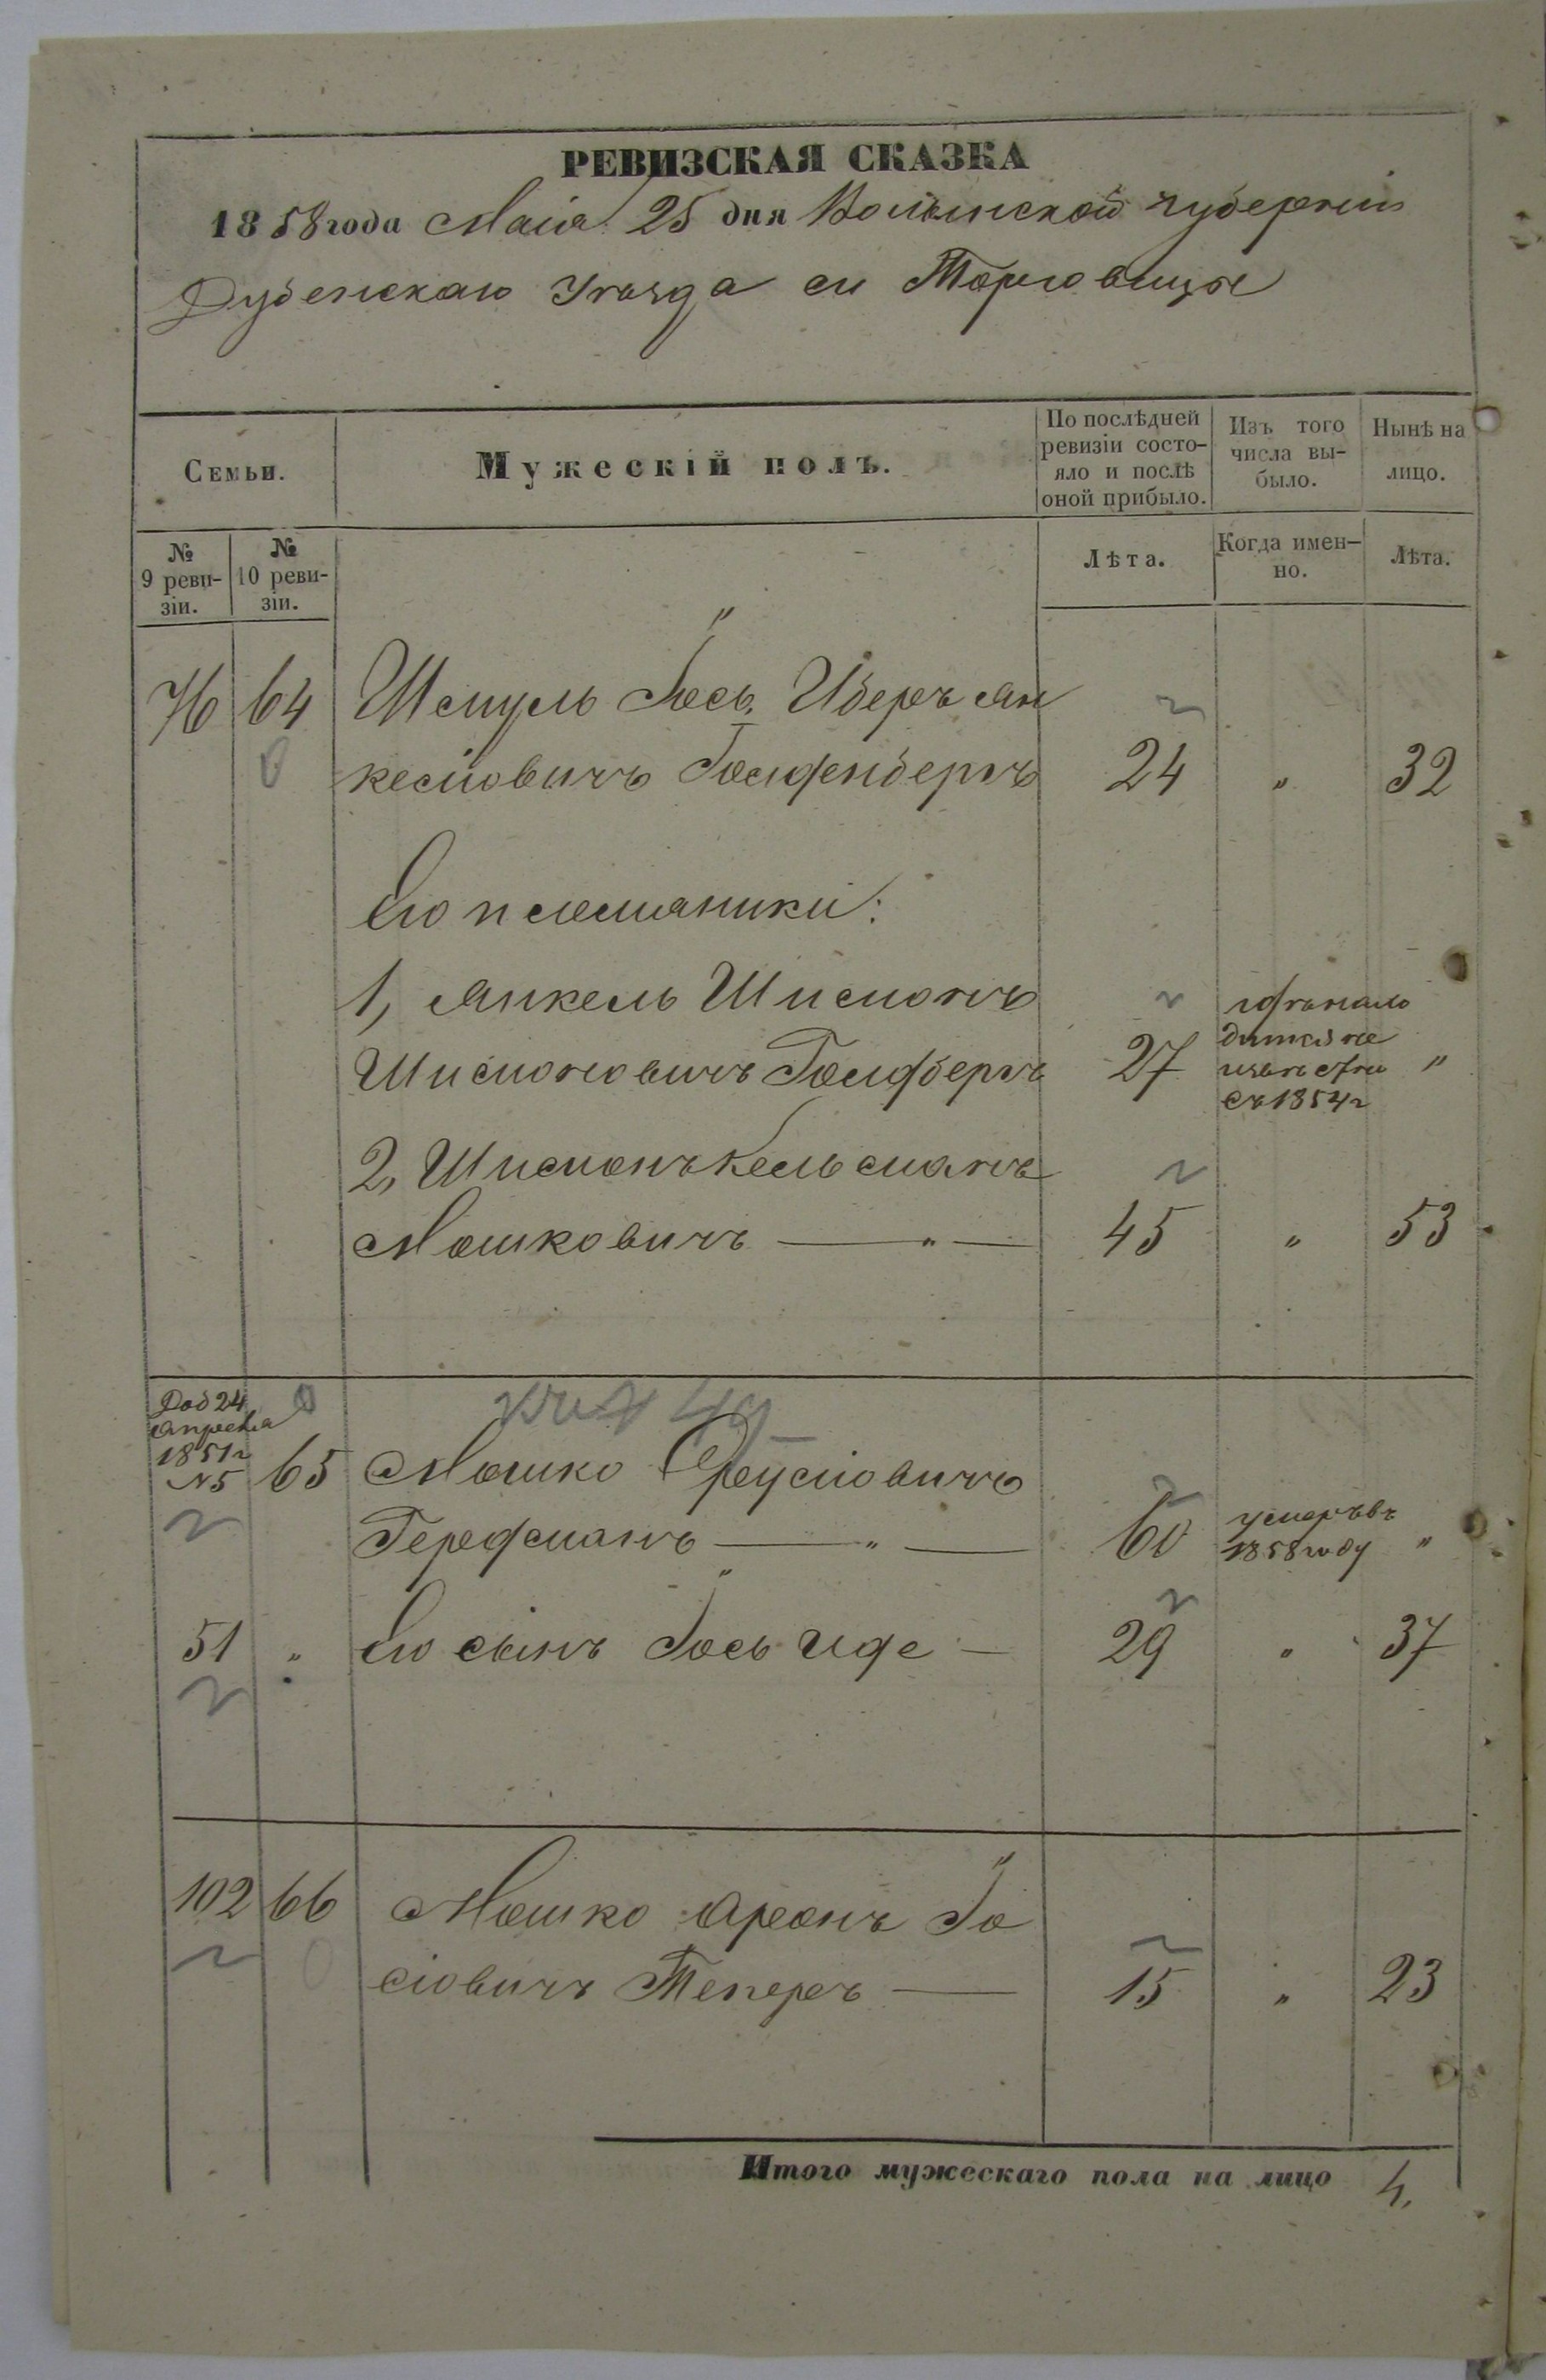 РЕВИЗСКАЯ СКАЗКА
1858 года Маія 25 дня Волынской губерніи
Дубенскаго Уѣзда м Торговицы
Семьи.
Мужескій полъ.
По послѣдней ревизіи состо-
яло и послѣ
оной прибыло.
Изъ того
числа вы-
было.
Нынѣ на
лицо.
№
9 реви-
зіи.
№
10 реви-
зіи.
Лѣта.
Когда имен-
но.
Лѣта.
76 64 Шмуль Іось Иберъ Ян
келіовичъ Голденбергъ 24 „ 32
Его племяники:
1, Янкель Шлиомъ
Шлиомовичъ Голдбергъ 27
не
съ 1854 г „
2, Кельманъ
Мошковичъ — „ — 45 „ 53
Доб 24
апреля
1851 г
№5 65 Мошко
Гередманъ — „ — 60 умеръ въ
1858 году „
51 „ Его сынъ Іось Иде — 29 „ 37
102 66 Мошко Аронъ Іо
сіовичъ Теперъ — 15 „ 23
Итого мужескаго пола на лицо 4.